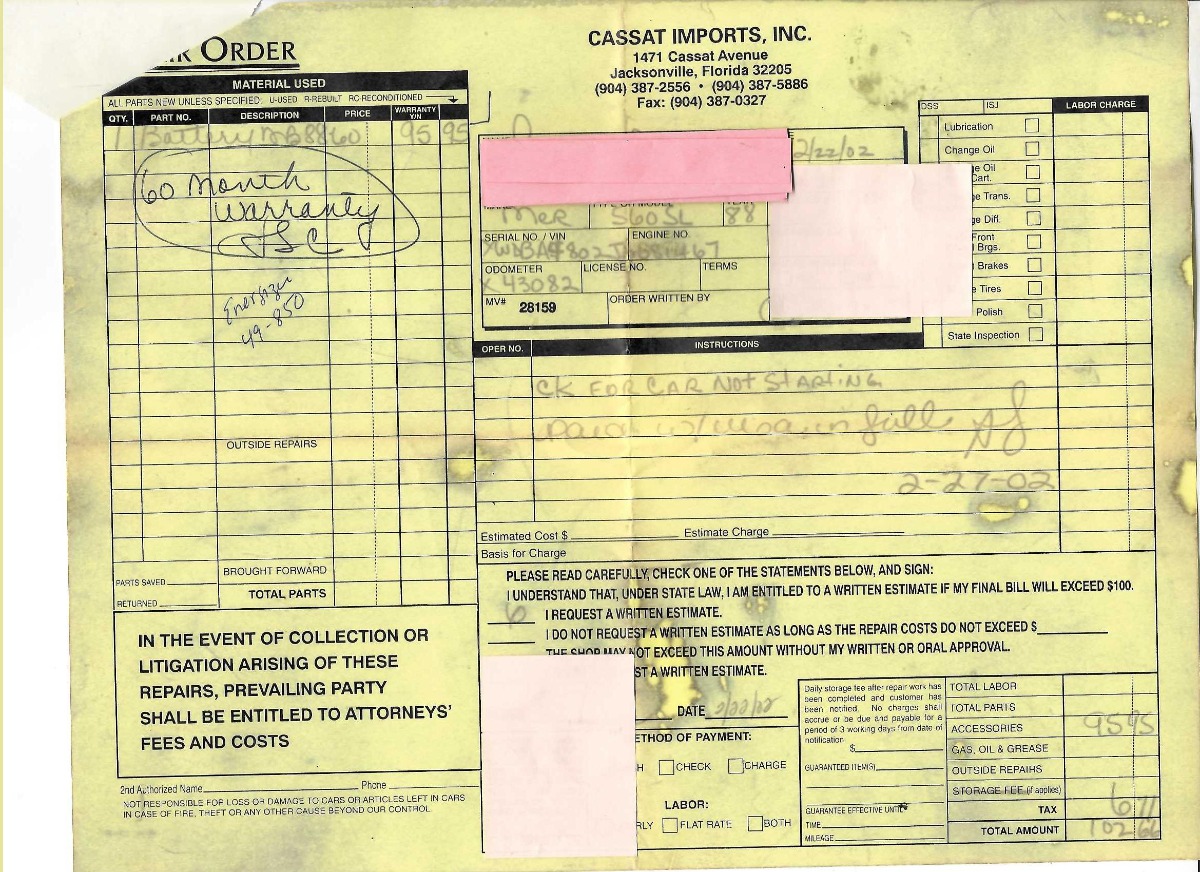 ORDER
CASSAT IMPORTS, INC.
1471 Cassat Avenue
Jacksonville, Florida 32205
(904) 387-2556 • (904) 387-5886
Fax: (904) 387-0327
MATERIAL USED
ALL PARTS NEW UNLESS SPECIFIED: U-USED R-REBUILT RC-RECONDITIONED
QTY. PART NO. DESCRIPTION PRICE WARRANTY Y/N
1 Battery MB8860 95 95
60 Month
Warranty
Energizer
49-850
OUTSIDE REPAIRS
BROUGHT FORWARD
PARTS SAVED
RETURNED
TOTAL PARTS
2/22/02
Mer 560 SL 88
SERIAL NO. / VIN ENGINE NO.
ODOMETER LICENSE NO. TERMS
43082
MV# 28159 ORDER WRITTEN BY
OSS ISJ LABOR CHARGE
Lubrication
Change Oil
Oil
Cart.
Trans.
Diff.
Front
Brgs.
Brakes
Tires
Polish
State Inspection
OPER NO. INSTRUCTIONS
CK FOR CAR NOT STARTING
2-27-02
Estimated Cost $ Estimate Charge
Basis for Charge
PLEASE READ CAREFULLY, CHECK ONE OF THE STATEMENTS BELOW, AND SIGN:
I UNDERSTAND THAT, UNDER STATE LAW, I AM ENTITLED TO A WRITTEN ESTIMATE IF MY FINAL BILL WILL EXCEED $100.
I REQUEST A WRITTEN ESTIMATE.
I DO NOT REQUEST A WRITTEN ESTIMATE AS LONG AS THE REPAIR COSTS DO NOT EXCEED $
THE SHOP MAY NOT EXCEED THIS AMOUNT WITHOUT MY WRITTEN OR ORAL APPROVAL.
A WRITTEN ESTIMATE.
DATE
IN THE EVENT OF COLLECTION OR
LITIGATION ARISING OF THESE
REPAIRS, PREVAILING PARTY
SHALL BE ENTITLED TO ATTORNEYS'
FEES AND COSTS
2nd Authorized Name Phone
NOT RESPONSIBLE FOR LOSS OR DAMAGE TO CARS OR ARTICLES LEFT IN CARS
IN CASE OF FIRE, THEFT OR ANY OTHER CAUSE BEYOND OUR CONTROL.
OF PAYMENT:
CHECK CHARGE
LABOR:
FLAT RATE BOTH
Daily storage fee after repair work has
been completed and customer has
been notified. No charges shall
accrue or be due and payable for a
period of 3 working days from date of
notification.
$
GUARANTEED ITEM(S)
GUARANTEE EFFECTIVE UNTIL
TIME
MILEAGE
TOTAL LABOR
TOTAL PARTS
ACCESSORIES 95 95
GAS, OIL & GREASE
OUTSIDE REPAIRS
STORAGE FEE (if applies)
TAX 6 71
TOTAL AMOUNT 102 66